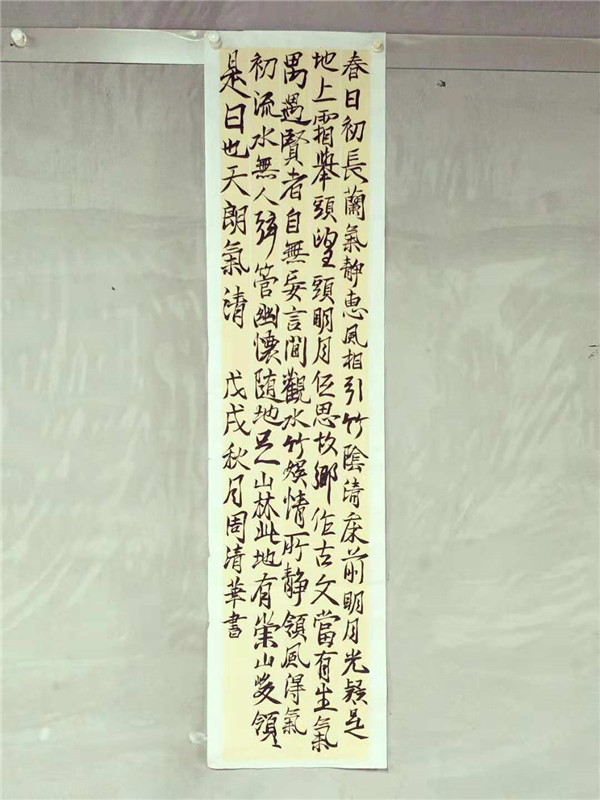 春日初長蘭氣靜惠風相引竹陰清床前明月光疑是
地上霜舉頭望頭明月低思故鄉作古文當有生氣
偶遇賢者自無妄言閒觀水竹娱情所靜領風得氣
初流水無人弹管幽懷随地足山林此地有崇山峻領
是日也天朗氣清 戊戌秋月周清華書